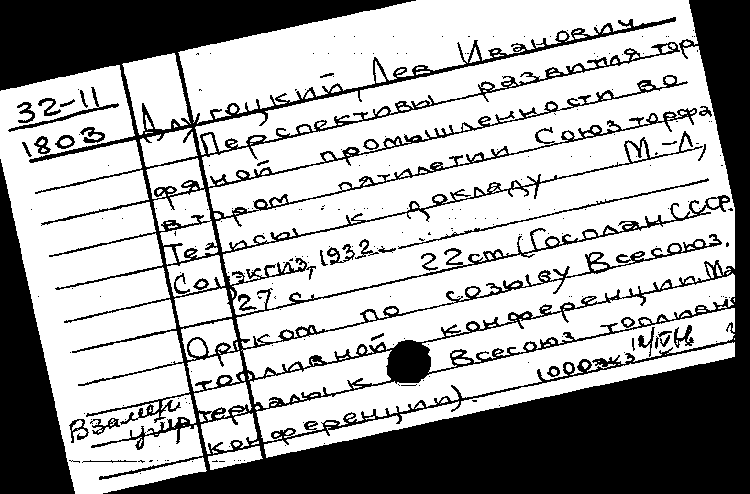 32-11
1803
Длугоцкий, Лев Иванович
Перспективы развития тор
фяной промышленности во
втором пятилетии Союзторфа
Тезисы к докладу. М.-Л.,
Соцэкгиз, 1932.
27 с. 22 cm. (Госплан СССР.
Оргком. по созыву Всесоюз.
топливной конференции. Ма
териалы к Всесоюз. топливно
конференции). 1000 экз
12/IV 66
Взамен
утр.